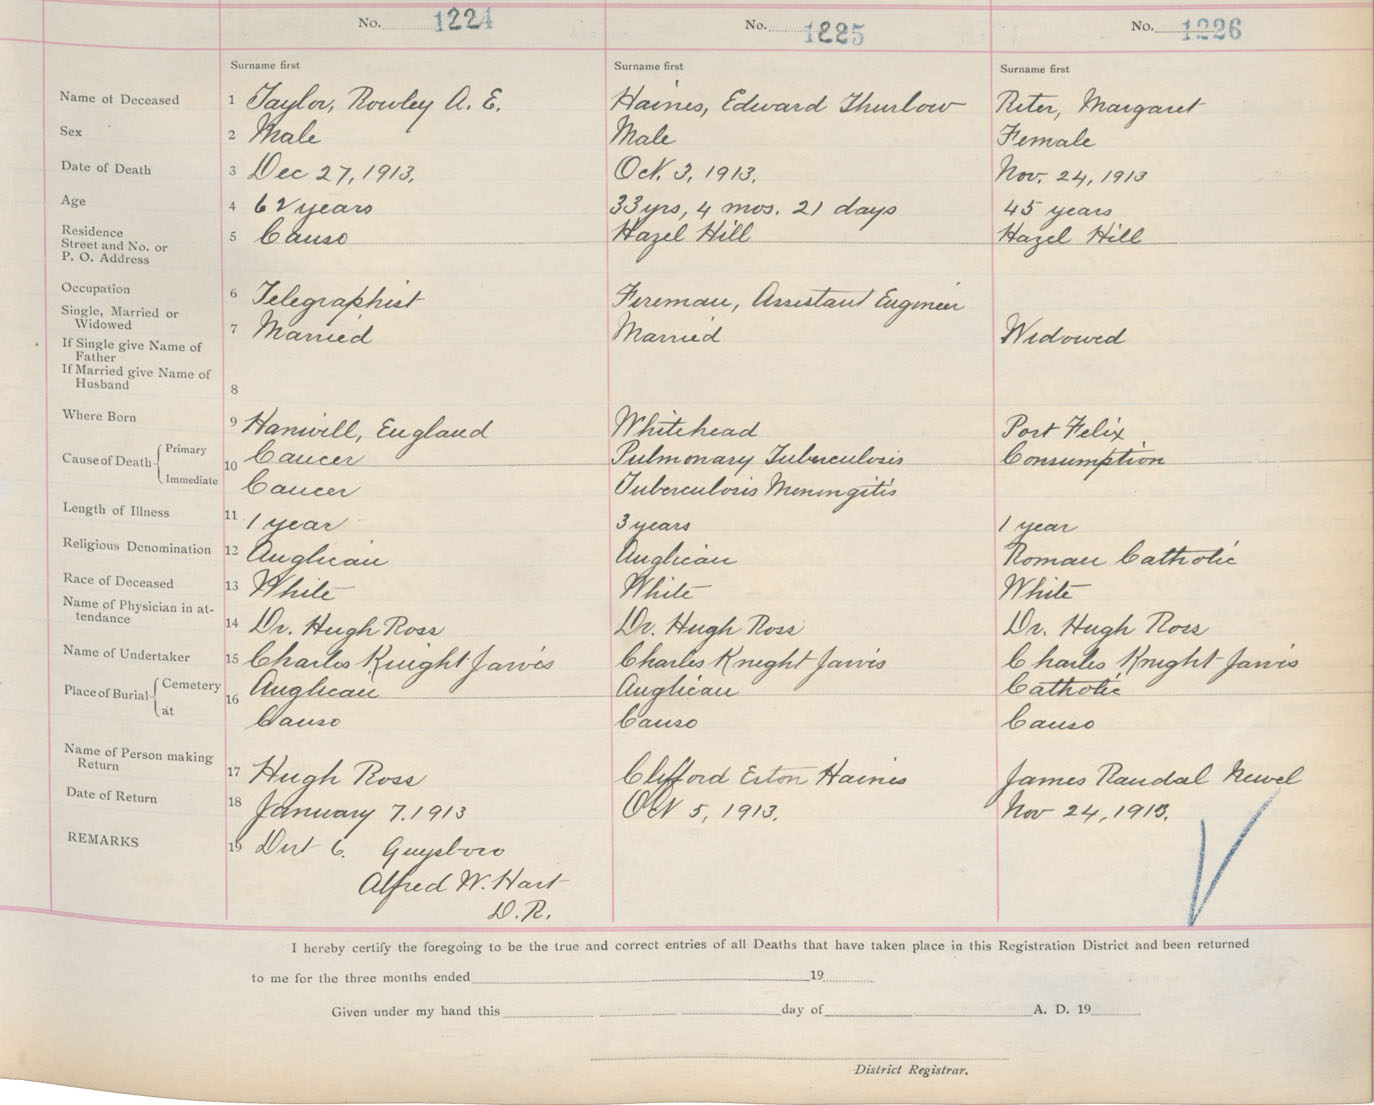 No. 1224 No. 1225 No. 1226
Surname first Surname first Surname first
Name of Deceased 1 Taylor, Rowley A. E. Haines, Edward Thurlow Reter, Margaret
Sex 2 Male Male Female
Date of Death 3 Dec 27, 1913. Oct. 3, 1913. Nov. 24, 1913
Age 4 62 years 33 yrs, 4 mos. 21 days 45 years
Residence
Street and No. or 5 Canso Hazel Hill Hazel Hill
P. O. Address
Occupation 6 Telegraphist Fireman, Assistant Engineer
Single, Married or
Widowed 7 Married Married Widowed
If Single give Name of
Father
If Married give Name of
Husband 8
Where Born 9 Hanwill, England Whitehead Port Felix
Cause of Death Primary 10 Cancer Pulmonary Tuberculosis Consumption
Immediate Cancer Tuberculosis Meningitis
Length of Illness 11 1 year 3 years 1 year
Religious Denomination 12 Anglican Anglican Roman Catholic
Race of Deceased 13 White White White
Name of Physician in at-
tendance 14 Dr. Hugh Ross Dr. Hugh Ross Dr. Hugh Ross
Name of Undertaker 15 Charles Knight Jarvis Charles Knight Jarvis Charles Knight Jarvis
Place of Burial Cemetery 16 Anglican Anglican Catholic
at Canso Canso Canso
Name of Person making
Return 17 Hugh Ross Clifford Eston Haines James Randal Newel
Date of Return 18 January 7. 1913 Oct 5, 1913. Nov 24, 1913.
REMARKS 19 Dist 6. Guysboro
Alfred W. Hart
D. R.
I hereby certify the foregoing to be the true and correct entries of all Deaths that have taken place in this Registration District and been returned
to me for the three months ended 19
Given under my hand this day of A. D. 19
District Registrar.